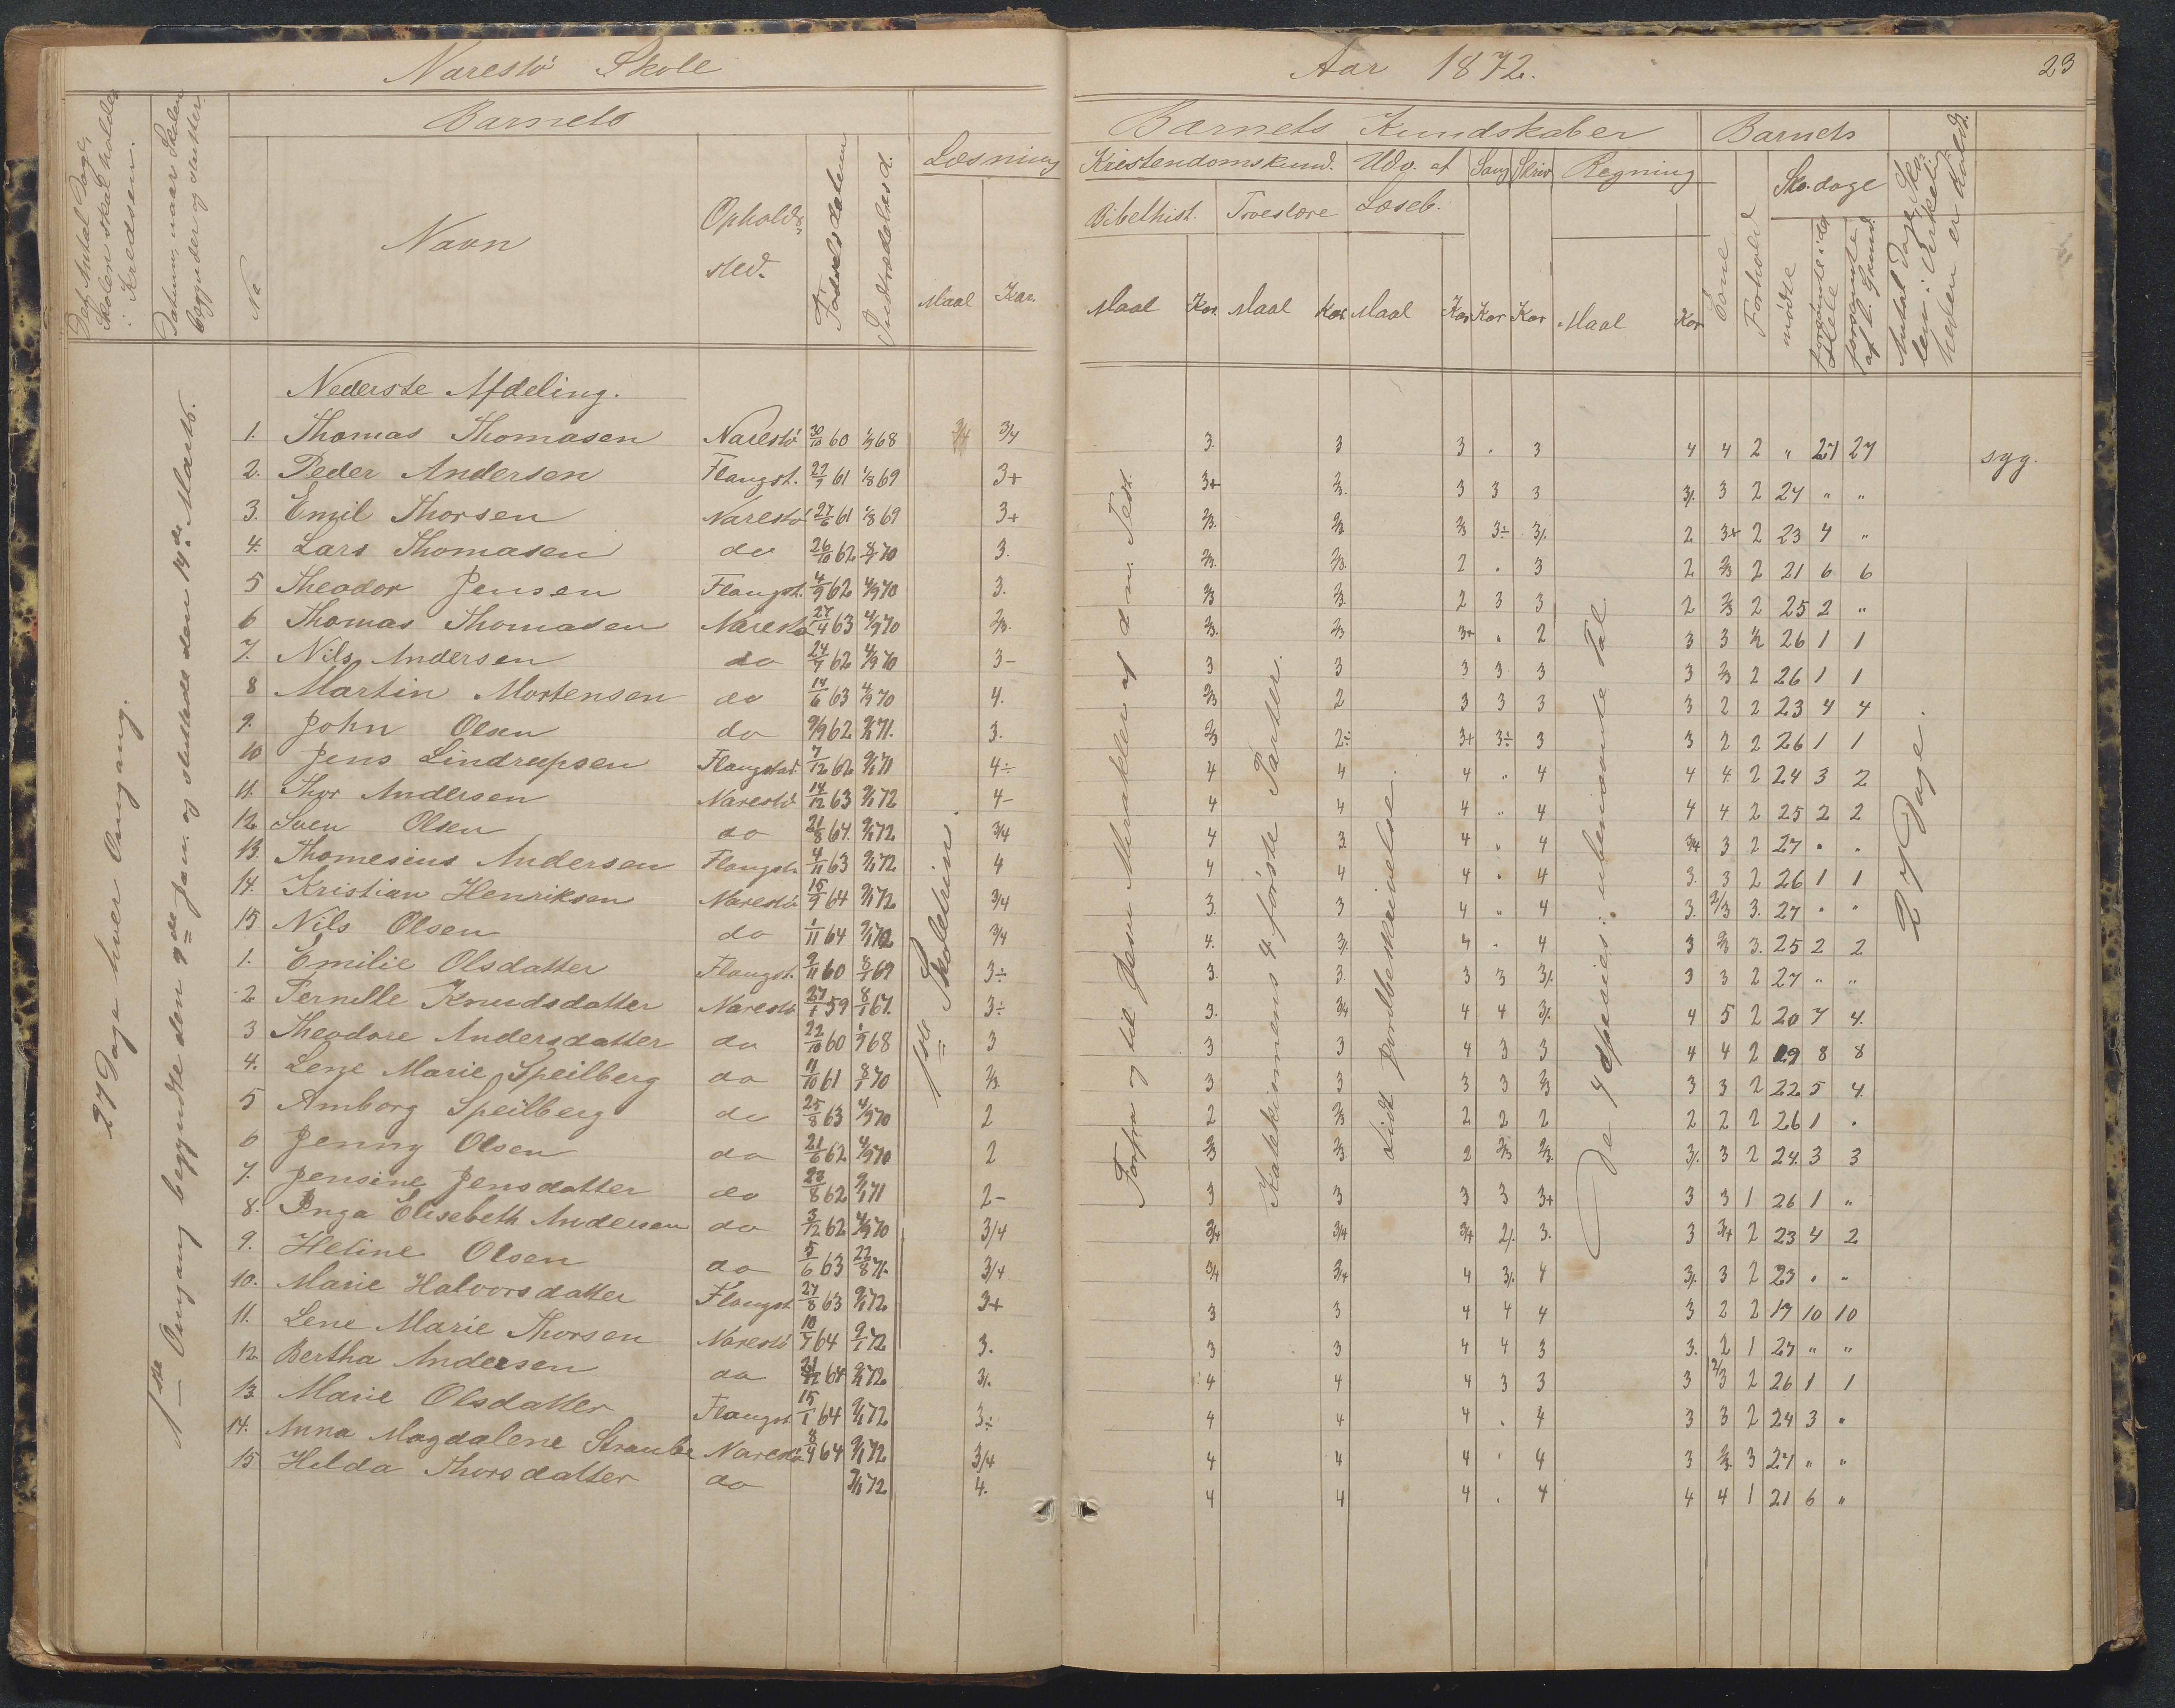 Narestø Skole
Aar 1872.
23
Barnets
Læsning
No
Navn
Opholdssted.
Fødselsdatum
Indtrædelsesd.
Maal Kar.
Barnets Kundskaber
Barnets
Kristendomskund. Udv. af Læseb. Sang Skriv Regning
Bibelhist. Troeslære
Maal Kar. Maal Kar. Maal Kar Kar Kar Maal Kar
Evne
Forhold
Sko.dage
mødte
forsømte i det Hele
forsømte af l. Grund
Antal Dage Skolen i Virkeligheden er holdt.
Det Antal Dage, Skolen skal holdes i Kredsen.
Datum, naar Skolen begynder og slutter.
27 Dage hver Omgang.
1ste Omgang begyndte den 9de Jan. og sluttede den 14de Marts.
1ste Skoletrin.
Forfra og til Jesu Mirakler af d. n. Test.
Katekismens 4 første Parter.
Lidt Jordbeskrivelse.
De 4 Spesies i ubenævnte Tal
27 Dage.
Nederste Afdeling.
1. Thomas Thomasen Narestø 30/10 60 1/7 68 3/4 3/4 3. 3 3 . 3 4 4 2 „ 27 27 syg.
2. Peder Andersen Flangst. 27/9 61 1/8 69 3+ 3+ 2/3. 3 3 3 3/. 3 2 27 „ „
3. Emil Thorsen Narestø 27/6 61 1/8 69 3+ 2/3. 2/3 2/3 3÷ 3/. 2 3+ 2 23 4 „
4. Lars Thomasen do 26/10 62 8/1 70 3. 2/3. 2/3. 2 . 3 2 2/3 2 21 6 6
5 Theodor Jensen Flangst. 4/9 62 4/9 70 3. 2/3 2/3. 2 3 3 2 2/3 2 25 2 „
6 Thomas Thomasen Narestø 27/4 63 4/9 70 2/3. 2/3. 2/3 3+ . 2 3 3 1/2 26 1 1
7. Nils Andersen do 24/7 62 4/9 70 3- 3 3 3 3 3 3 2/3 2 26 1 1
8 Martin Mortensen do 14/6 63 4/9 70 4. 2/3 2 3 3 3 3 2 2 23 4 4
9. John Olsen do 9/9 62 9/1 71. 3. 2/3 2÷ 3+ 3÷ 3 3 2 2 26 1 1
10 Jens Lindrupsen Flangstad 7/12 62 9/1 71 4÷ 4 4 4 „ 4 4 4 2 24 3 2
11. Thor Andersen Narestø 14/12 63 9/1 72 4- 4 4 4 „ 4 4 4 2 25 2 2
12 Sven Olsen do 21/8 64. 9/1 72 3/4 4 3 4 „ 4 3/4 3 2 27 . „
13. Thomesius Andersen Flangst. 4/11 63 9/1 72 4 4 4 4 . 4 3. 3 2 26 1 1
14. Kristian Henriksen Narestø 15/9 64 9/1 72 3/4 3. 3 4 „ 4 3. 2/3 3. 27 . „
15 Nils Olsen do 1/11 64 9/1 72 3/4 4. 3/. 4 . 4 3 2/3 3. 25 2 2
1. Emilie Olsdatter Flangst. 9/11 60 8/1 69 3÷ 3. 3. 3 3 3/. 3 3 2 27 „ „
2 Pernille Knudsdatter Narestø 27/1 59 8/1 67. 3÷ 3. 3/4 4 4 3/. 4 5 2 20 7 4.
3 Theodore Andersdatter do 22/10 60 1/7 68 3 3 3 4 3 3 4 4 2 19 8 8
4. Lene Marie Speilberg do 11/10 61 8/1 70 2/3. 3 3 3 3 2/3 3 3 2 22 5 4.
5 Amborg Speilberg do 25/8 63 4/9 70 2 2 2/3 2 2 2 2 2 2 26 1 .
6 Jenny Olsen do 21/6 62 4/9 70 2 2/3 2/3 2 2/3 2/3. 3/. 3 2 24. 3 3
7. Jensine Jensdatter do 23/8 62 9/1 71 2- 3 3 3 3 3+ 3 3 1 26 1 „
8. Inga Elisebeth Andersen do 3/12 62 4/9 70 3/4 3/4 3/4 3/4 2/. 3. 3 3/4 2 23 4 2
9. Heline Olsen do 5/6 63 22/8 71. 3/4 3/4 3/4 4 3/. 4 3/. 3 2 23 . „
10. Marie Halvorsdatter Flangst 27/8 63 9/1 72 3+ 3 3 4 4 4 3 2 2 17 10 10
11. Lene Marie Thorsen Narestø 10/7 64 9/1 72 3. 3 3 4 4 3 3. 2 1 27 „ „
12 Bertha Andersen do 21/12 64 9/1 72 3/. 4 4 4 3 3 3 2/3 2 26 1 1
13 Marie Olsdatter Flangst. 15/1 64 9/1 72 3÷ 4 4 4 . 4 3 3 2 24 3 „
14. Anna Magdalene Straube Narestø 8/4 64 9/1 72 3/4 4 4 4 . 4 3 2/3. 3 27 „ „
15 Helda Thorsdatter do 9/1 72 4. 4 4 4 . 4 4 4 1 21 6 „